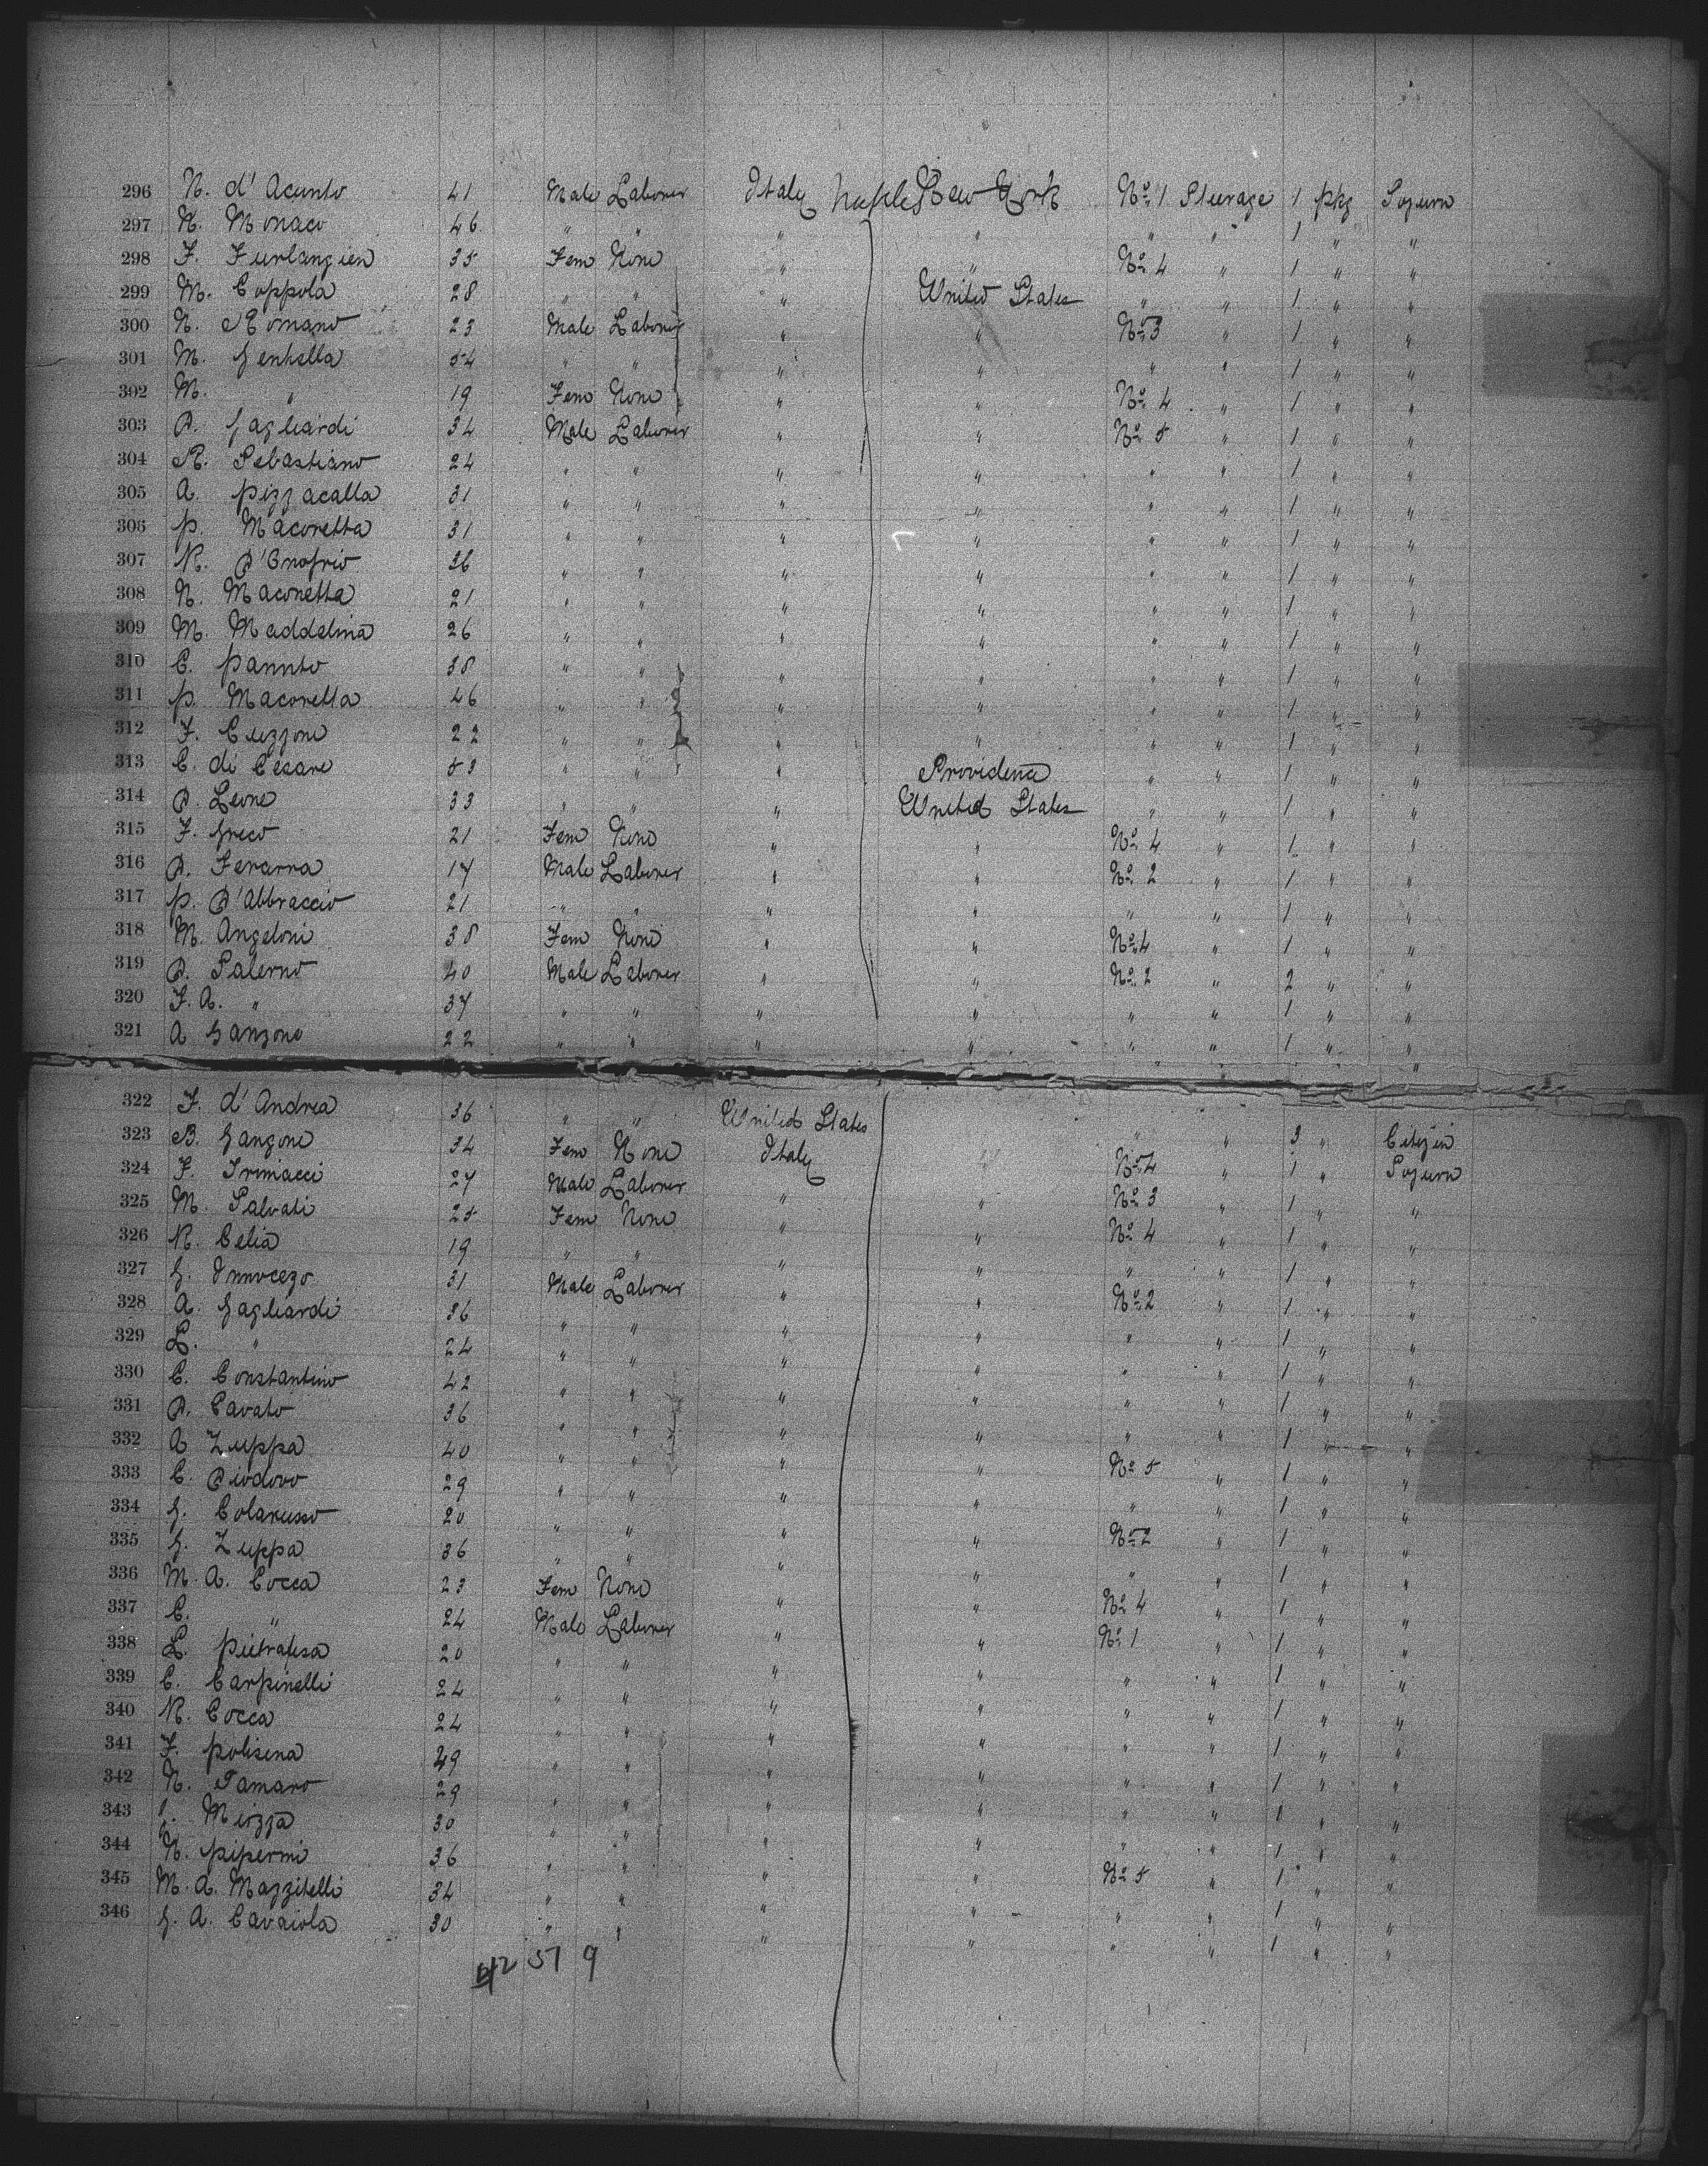 296 N. d'Acunto 41 Male Laborer Italy Naples New York No 1 Steerage 1 pkg Sojourn
297 N. Monaco 46 " " " " " " 1 " "
298 F. Furlangien 35 Fem None " " No 4 " 1 " "
299 M. Coppola 28 " " " United States " " 1 " "
300 N. Romano 23 Male Laborer " " No 3 " 1 " "
301 M. 54 " " " " " " 1 " "
302 M. " 19 Fem None " " No 4 " 1 " "
303 D. Gagliardi 34 Male Laborer " " No 5 " 1 " "
304 R. Sebastiano 24 " " " " " " 1 " "
305 A. Pizzacalla 31 " " " " " " 1 " "
306 P. Macoretta 31 " " " " " " 1 " "
307 N. D'Onofrio 26 " " " " " " 1 " "
308 N. Maconetta 21 " " " " " " 1 " "
309 M. Maddelina 26 " " " " " " 1 " "
310 C. Pannuto 38 " " " " " " 1 " "
311 P. Macoretta 46 " " " " " " 1 " "
312 F. Cuzzone 22 " " " " " " 1 " "
313 C. di Cesare 53 " " " Providence " " 1 " "
314 D. Leone 33 " " " United States " " 1 " "
315 F. Greco 21 Fem None " " No 4 " 1 " "
316 D. Ferarra 17 Male Laborer " " No 2 " 1 " "
317 P. D'Abbraccio 21 " " " " " " 1 " "
318 M. Angeloni 38 Fem None " " No 4 " 1 " "
319 D. Palerno 40 Male Laborer " " No 2 " 2 " "
320 F. A. " 37 " " " " " " 1 " "
321 A Ganzone 22 " " " " " " 1 " "
322 F. d'Andrea 36 " " United States " " 3 " Citizen
323 B. Gangone 34 Fem None Italy " No 4 " 1 " Sojourn
324 F. Irimacci 27 Male Laborer " " No 3 " 1 " "
325 M. Salvati 25 Fem None " " No 4 " 1 " "
326 N. Celia 19 " " " " " " 1 " "
327 G. Innocezo 31 Male Laborer " " No 2 " 1 " "
328 A. Gagliardi 36 " " " " " " 1 " "
329 L. " 24 " " " " " " 1 " "
330 C. Constantino 42 " " " " " " 1 " "
331 D. Cavato 36 " " " " " " 1 " "
332 A Zuppa 40 " " " " No 5 " 1 " "
333 C. Diodovo 29 " " " " " " 1 " "
334 G. Colarusso 20 " " " " No 2 " 1 " "
335 G. Zuppa 36 " " " " " " 1 " "
336 M. A. Cocca 23 Fem None " " No 4 " 1 " "
337 C. " 24 Male Laborer " " No 1 " 1 " "
338 L. Pietrafesa 20 " " " " " " 1 " "
339 C. Carpinelli 24 " " " " " " 1 " "
340 N. Cocca 24 " " " " " " 1 " "
341 F. Polisena 49 " " " " " " 1 " "
342 N. Tamaro 29 " " " " " " 1 " "
343 G. Miozza 30 " " " " " " 1 " "
344 N. Piperni 36 " " " " No 5 " 1 " "
345 M. A. Mazzitelli 34 " " " " " " 1 " "
346 G. A. Cavaiola 30 " " " " " " 1 " "
42 51 9